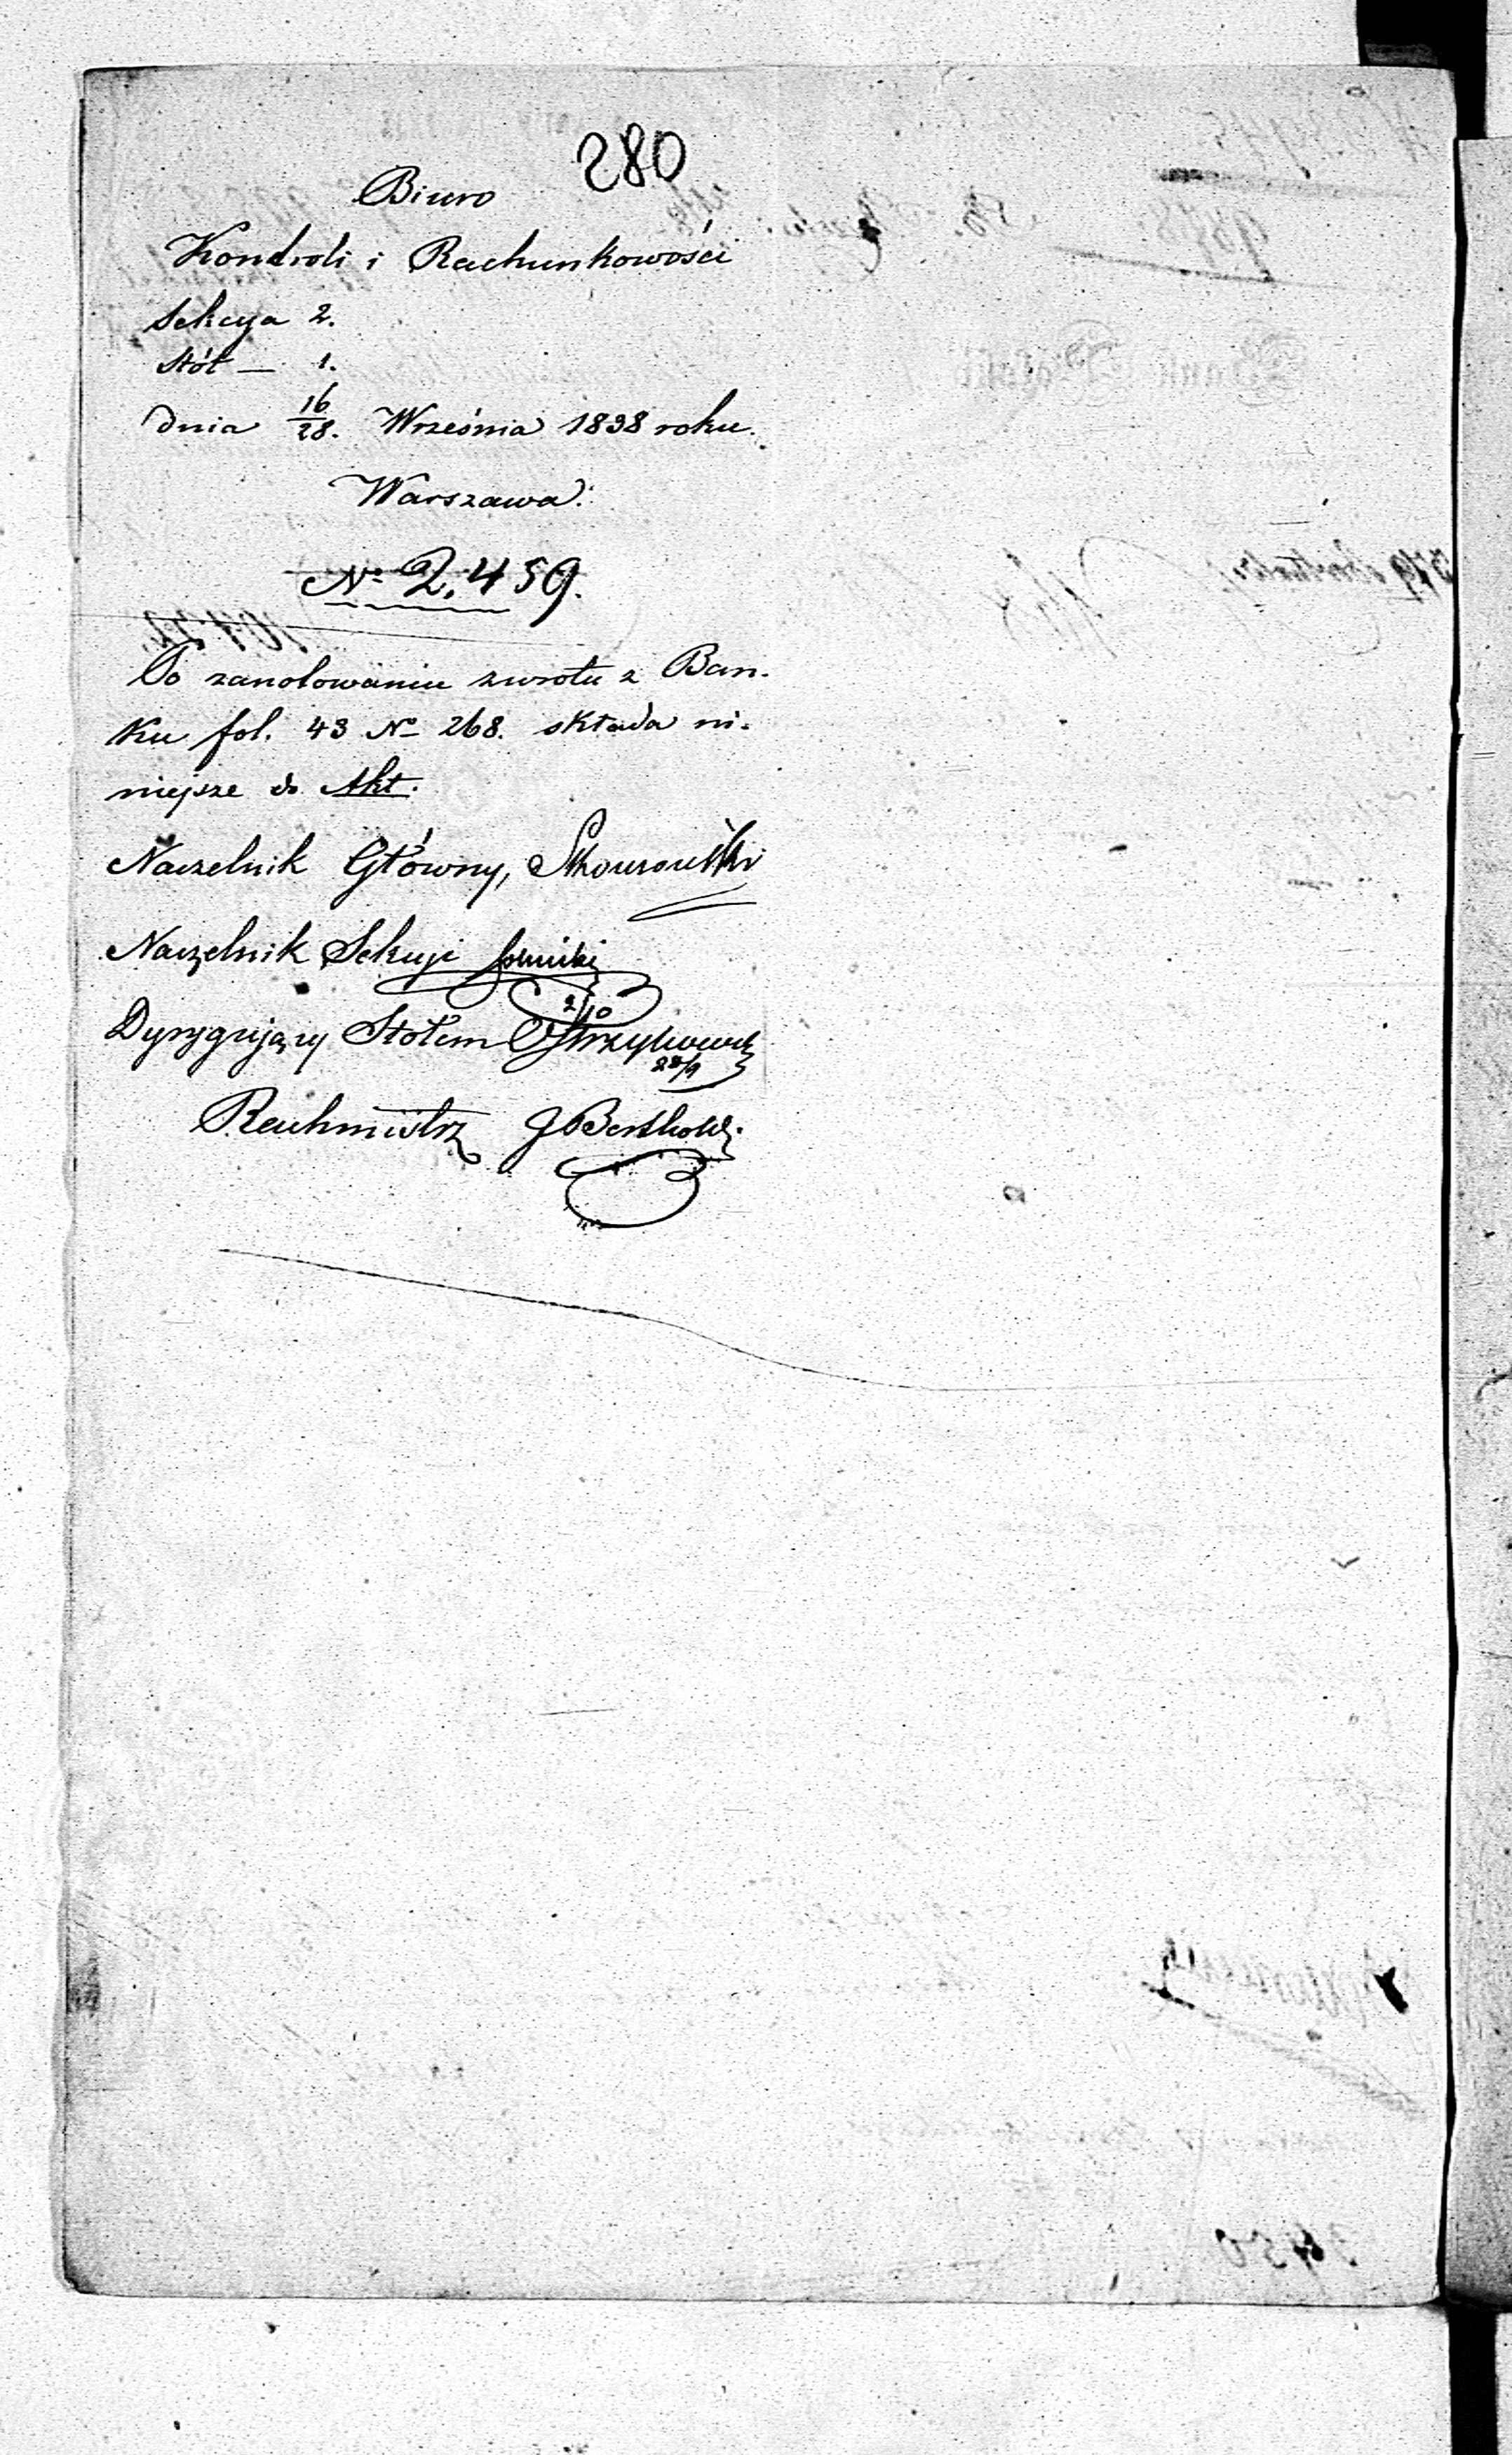 280
Biuro
Kontroli i Rachunkowości
Sekcya 2.
Stół — 1.
dnia 16/28. Września 1838 roku.
Warszawa.
№ 2,459.
Po zanotowaniu zwrotu z Ban-
ku fol. 43 № 268. składa ni-
niejsze do Akt.
Naczelnik Główny, Skowroński
Naczelnik Sekcyi
2/10
Dyrygujący Stołem
28/9
Rachmistrz G Berthold